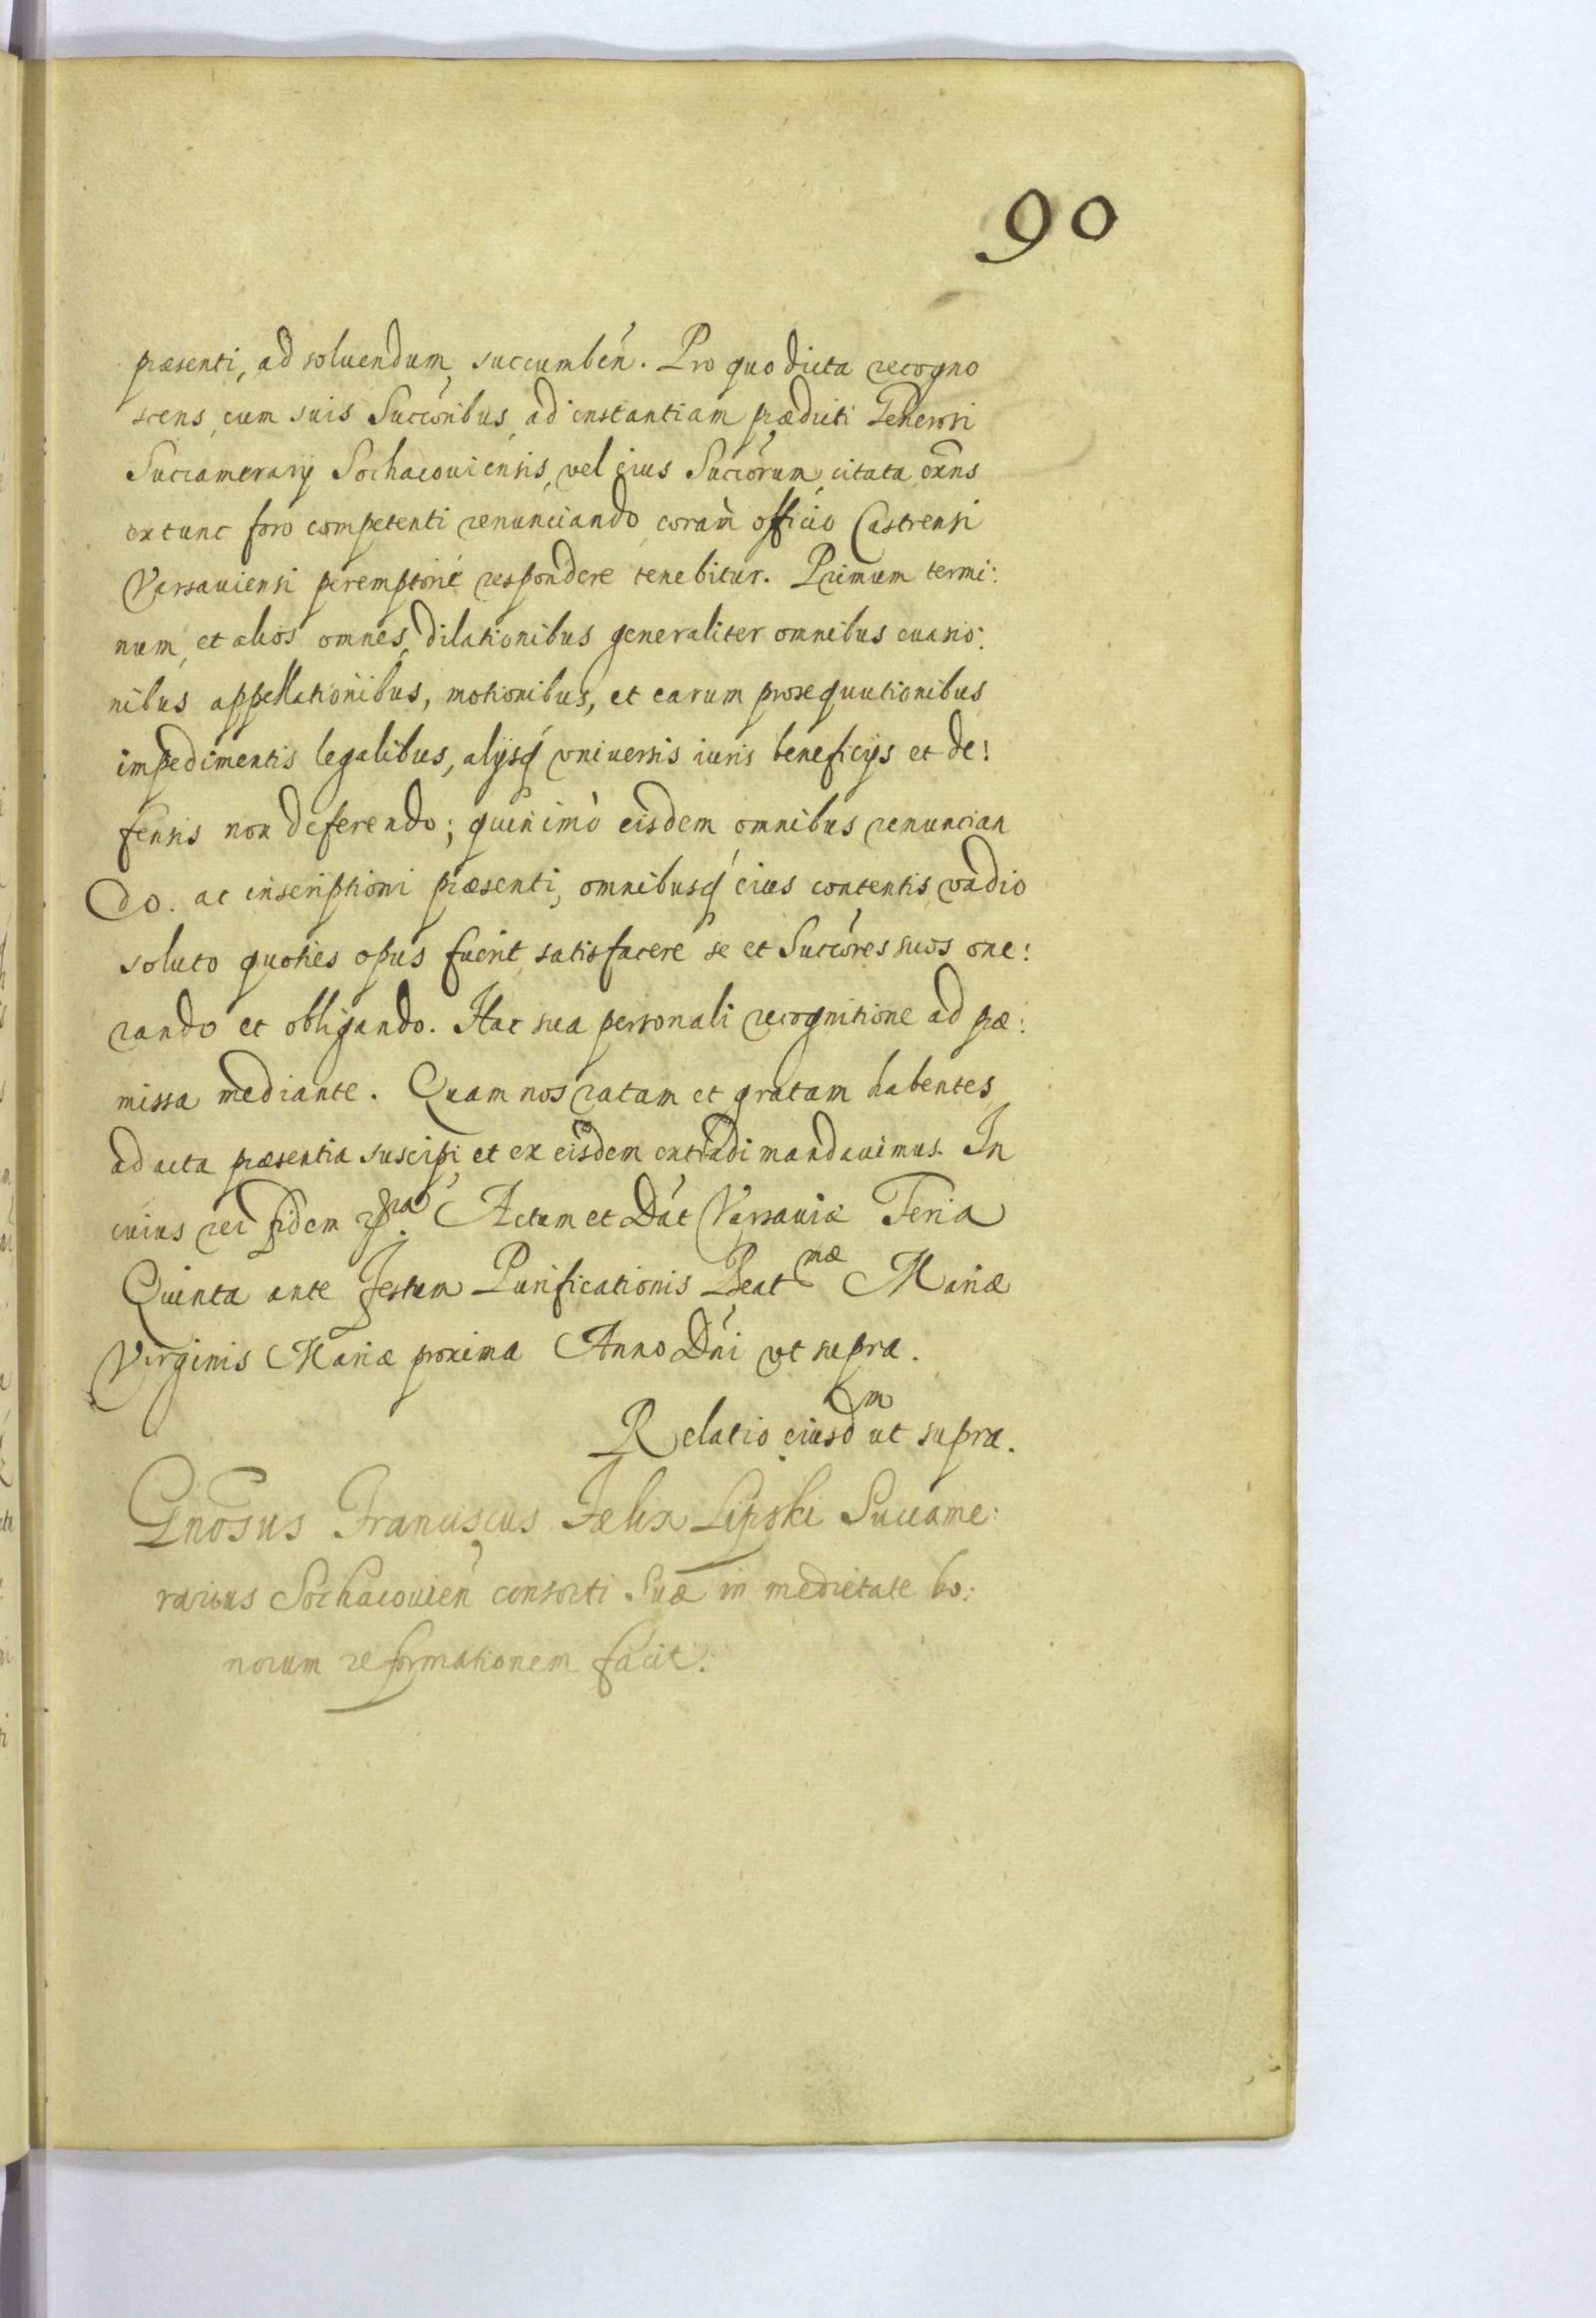 90
præsenti, ad soluendum, succumbeń. Pro quo dicta recogno
scens, cum suis Succõribus, ad instantiam prædicti Generosi
Succamerarij Sochacouiensis, vel eius Succõrum, citata, oẽns
extunc foro competenti renunciando, coram̀ officio Castrensi
Varsauiensi peremptoriè respondere tenebitur. Primum termi:
num, et alios omnes, dilationibus generaliter omnibus euasio:
nibus appellationibus, motionibus, et earum prosequutionibus
impedimentis legalibus, alijsq́ vniuersis iuris beneficijs et de:
fensis non deferendo; quinimò eisdem omnibus renuncian
do. ac inscriptioni præsenti, omnibusq́ eius contentis, vadio
soluto quoties opus fuerit, satisfacere se et Succõres suos one:
rando et obligando. Hac sua personali recognitione ad præ:
missa mediante. Quam nos ratam et gratam habentes
ad acta præsentia suscipi et ex eisdem extradi mandauimus. In
cuius rei fidem Actum et Dát Varsauiæ Feria
Quinta ante Festum Purificationis Beatmæ Mariæ
Virginis Mariæ proxima Anno Dńi vt supra.
Relatio eiusdm ut supra.
Gnõsus Franciscus Fælix Lipski Succame:
rarius Sochacouień consorti suæ in medietate bo:
norum reformationem facit.